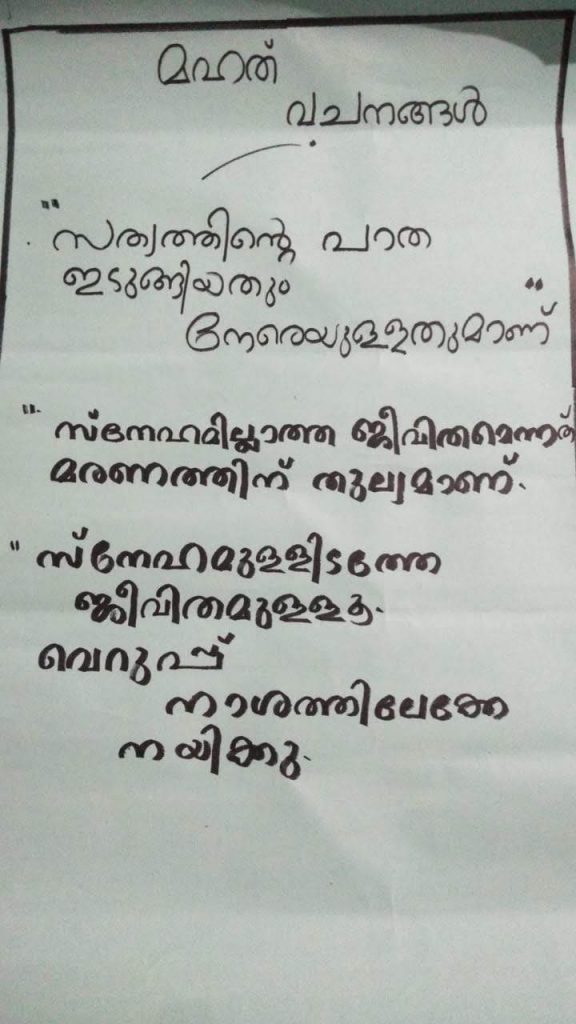 മഹത്
വചനങ്ങൾ
"സത്യത്തിന്റെ പാത
ഇടുങ്ങിയതും
നേരെയുള്ളതുമാണ്"
"സ്നേഹമില്ലാത്ത ജീവിതമെന്നത്
മരണത്തിന് തുല്യമാണ്.
"സ്നേഹമുള്ളിടത്തേ
ജീവിതമുള്ളൂ.
വെറുപ്പ്
നാശത്തിലേക്കേ
നയിക്കൂ.